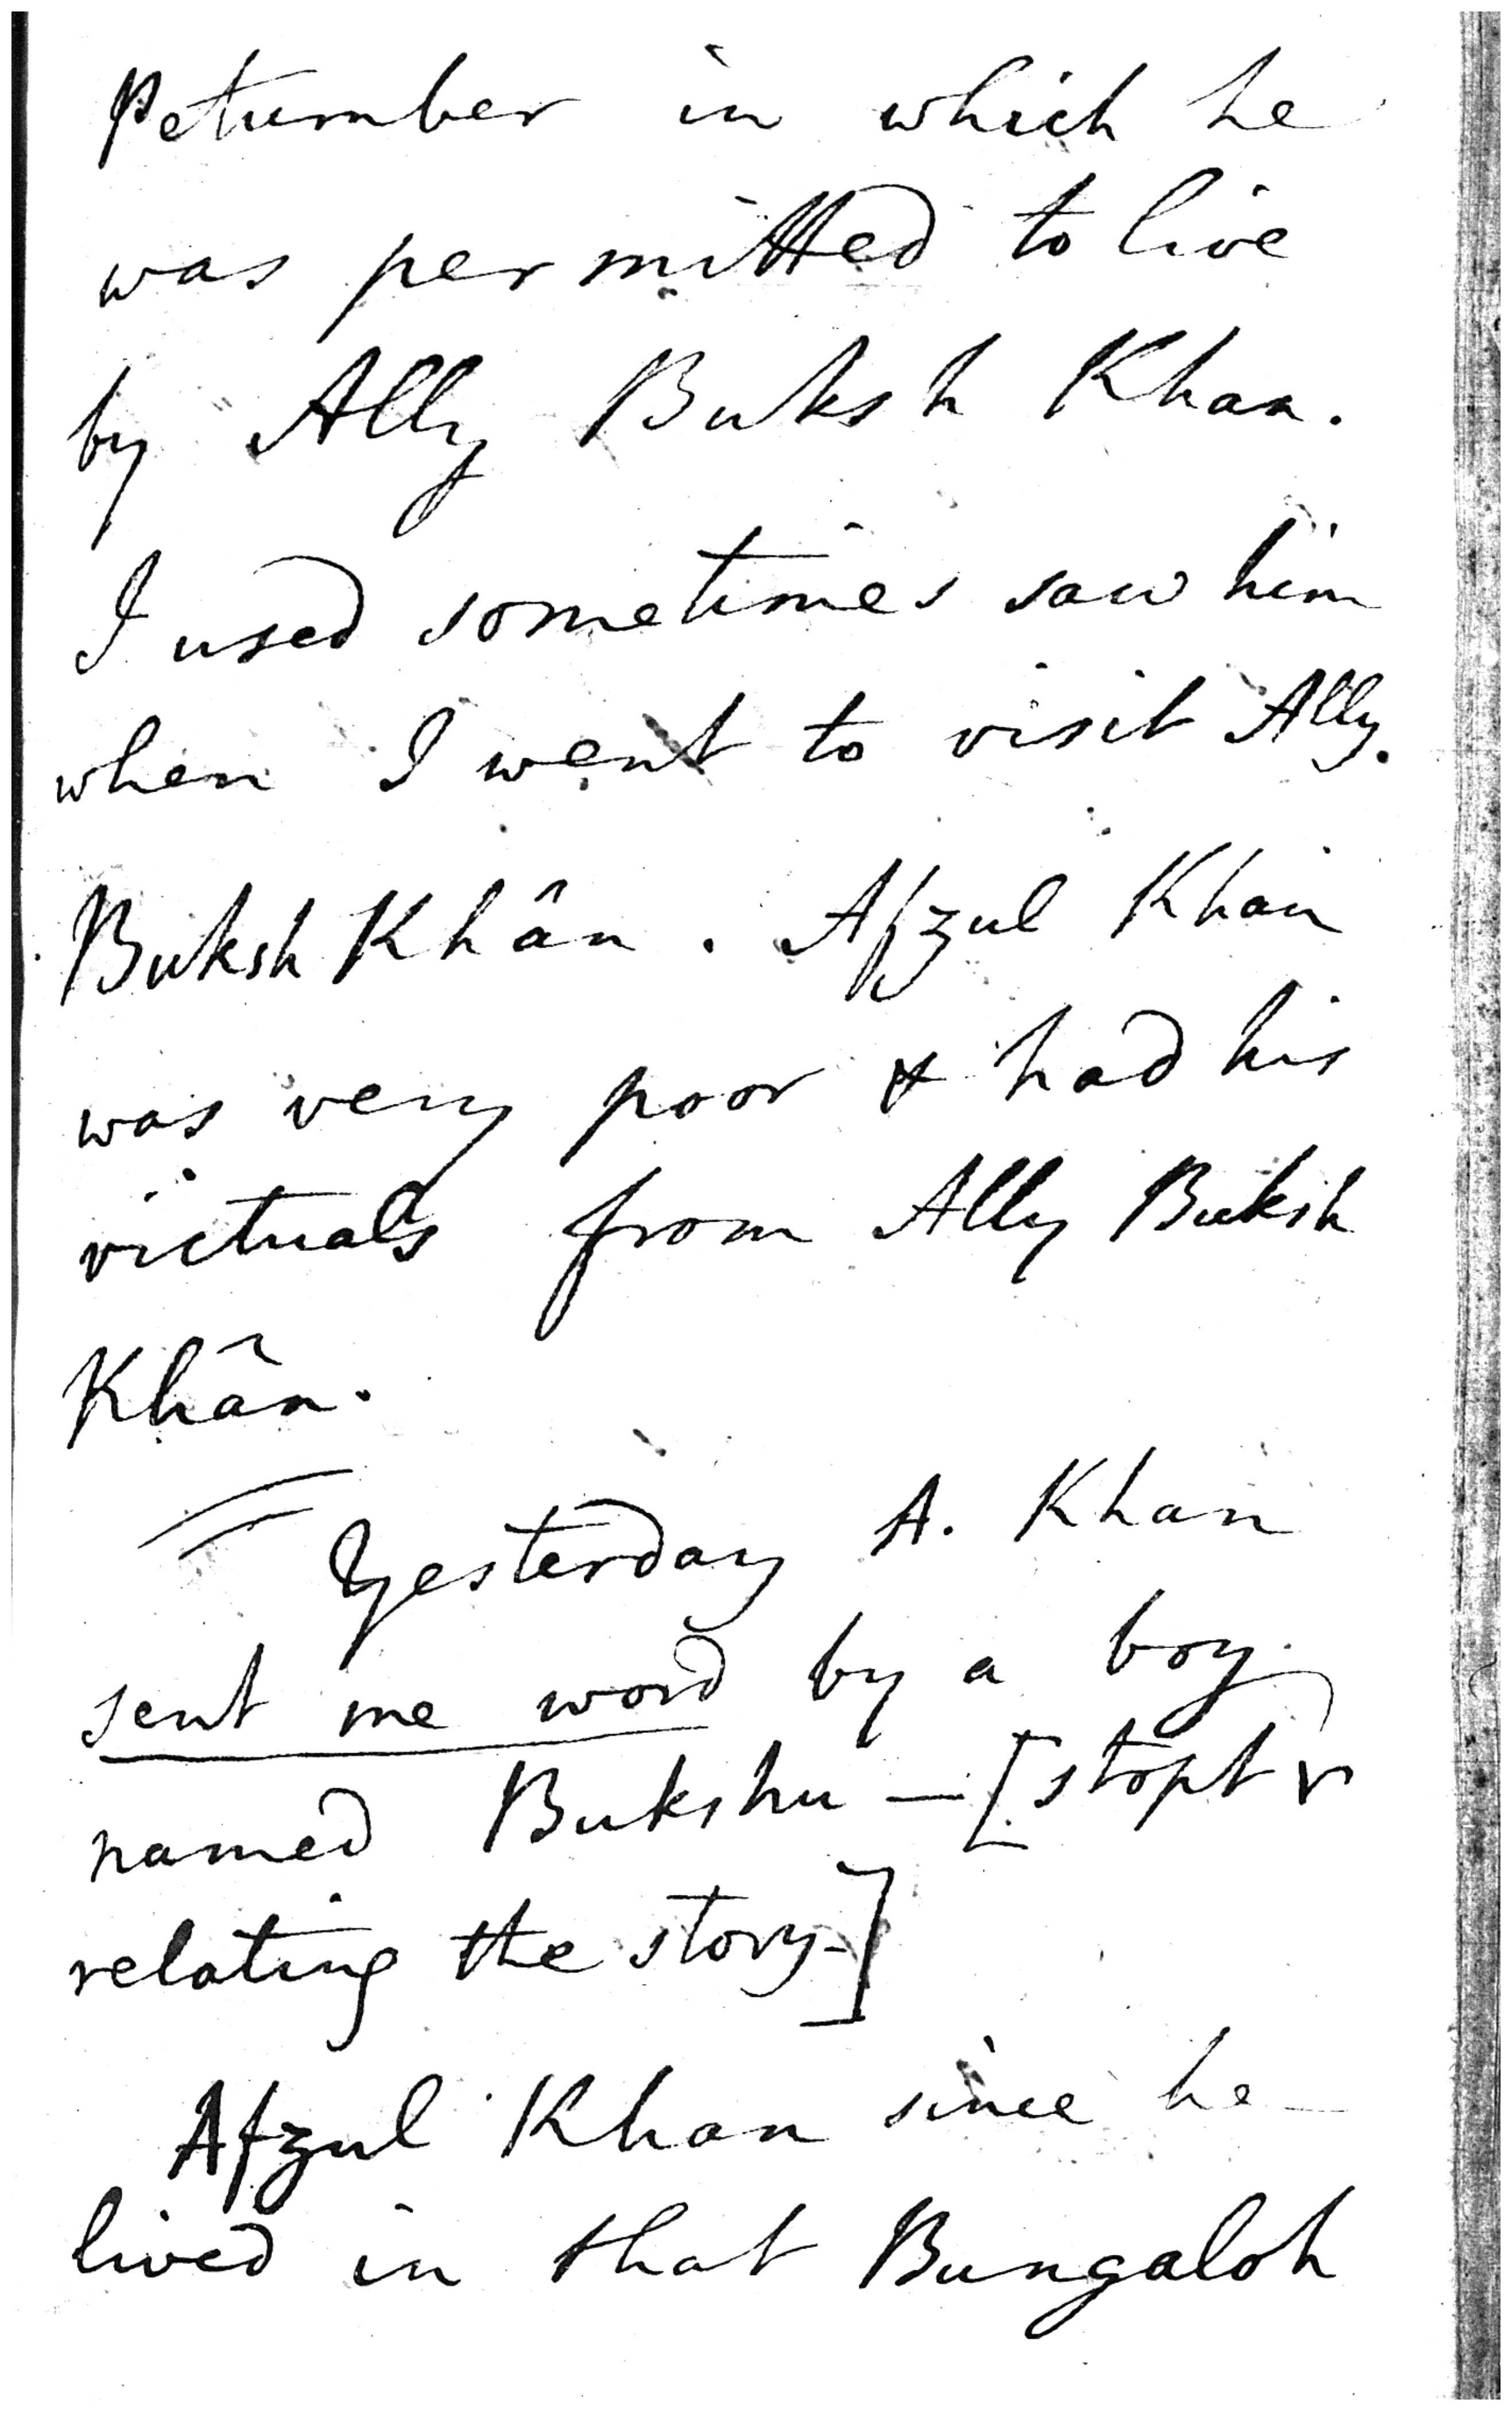 Petumber in which he
was permitted to live
by Ally Buksh Khan.
I used sometimes saw him
when I went to visit Ally.
Buksh Khân. Afzul Khan
was very poor & had his
victuals from Ally Buksh
Khân.
Yesterday A. Khan
sent me word by a boy
named Bukshu — [stopt
relating the story-]
Afzul Khan since he
lived in that Bungaloh